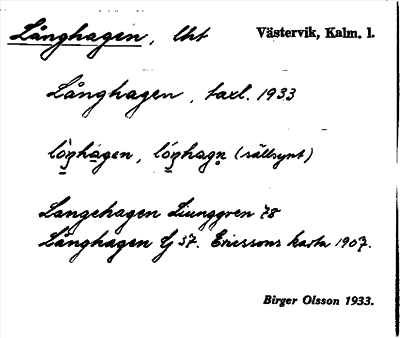 Långhagen, lht Västervik, Kalm. l.
Långhagen, taxl. 1933
lòŋhagen, lóŋhagn̥ (sällsynt)
Langehagen Ljunggren 78
Långhagen Ej 37. Ericssons karta 1907.
Birger Olsson 1933.